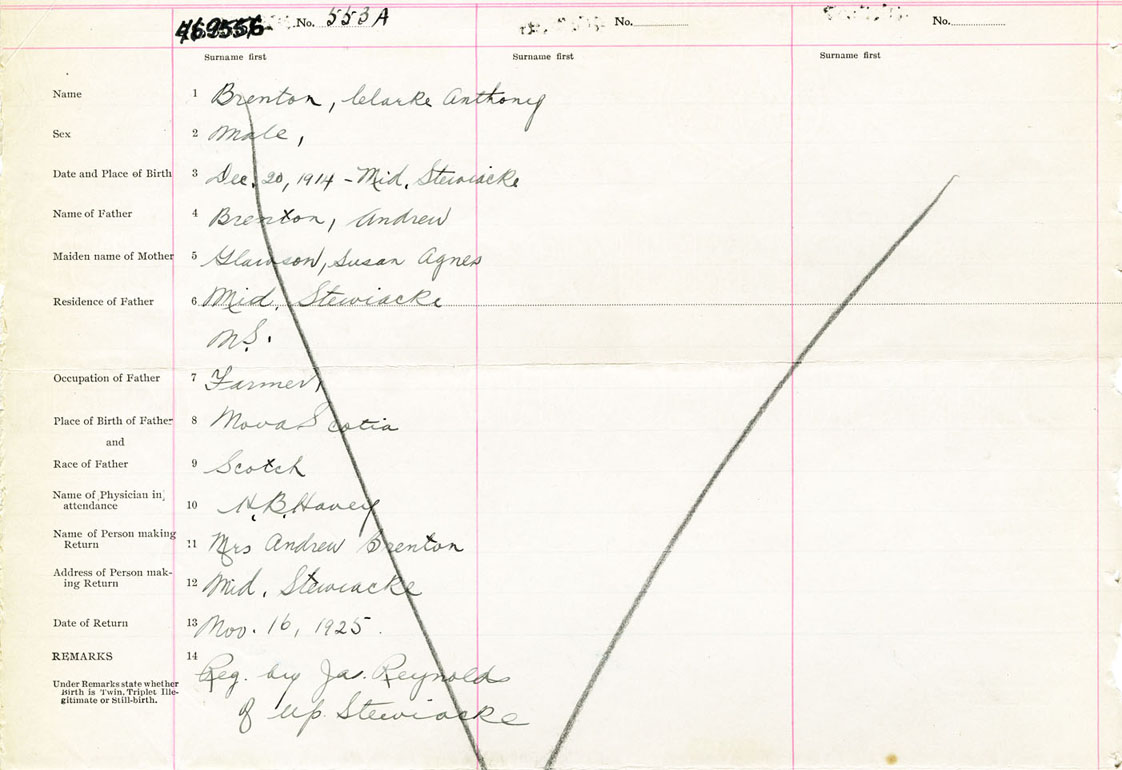 No. 553 A No. No.
Surname first Surname first Surname first
Name 1 Brenton, Clarke Anthony
Sex 2 Male,
Date and Place of Birth 3 Dec. 20, 1914 - Mid. Stewiacke
Name of Father 4 Brenton, Andrew
Maiden name of Mother 5 Susan Agnes
Residence of Father 6 Mid. Stewiacke
N.S.
Occupation of Father 7 Farmer,
Place of Birth of Father 8 Nova Scotia
and
Race of Father 9 Scotch
Name of Physician in
attendance 10 H.B. Havey
Name of Person making
Return 11 Mrs Andrew Brenton
Address of Person mak-
ing Return 12 Mid. Stewiacke
Date of Return 13 Nov. 16, 1925.
REMARKS 14 Reg. by Jas. Reynolds
of Up. Stewiacke
Under Remarks state whether
Birth is Twin, Triplet Ille-
gitimate or Still-birth.